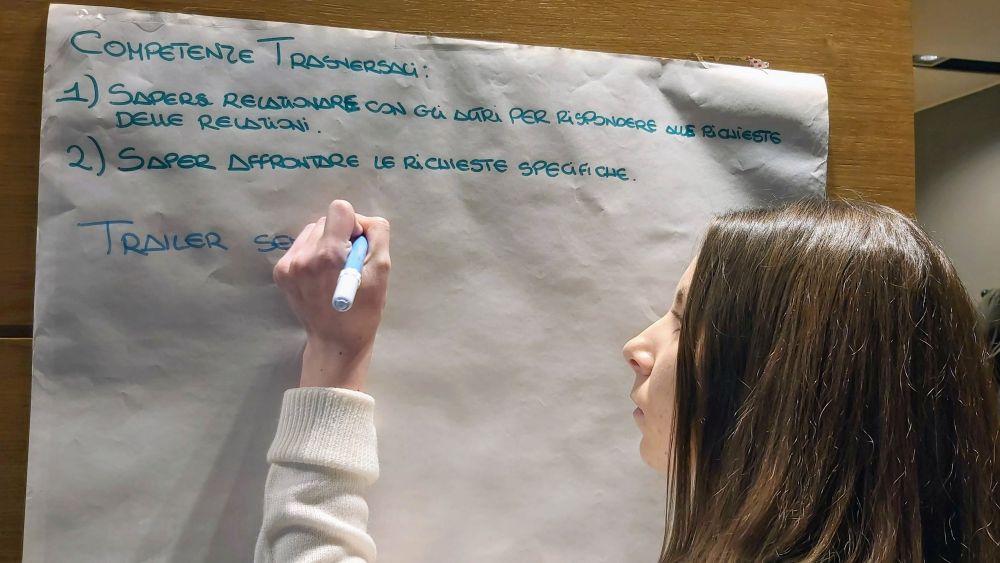 COMPETENZE TRASVERSALI:
1) SAPERSI RELAZIONARE CON GLI ALTRI PER RISPONDERE ALLE RICHIESTE
DELLE RELAZIONI.
2) SAPER AFFRONTARE LE RICHIESTE SPECIFICHE.
TRAILER SE